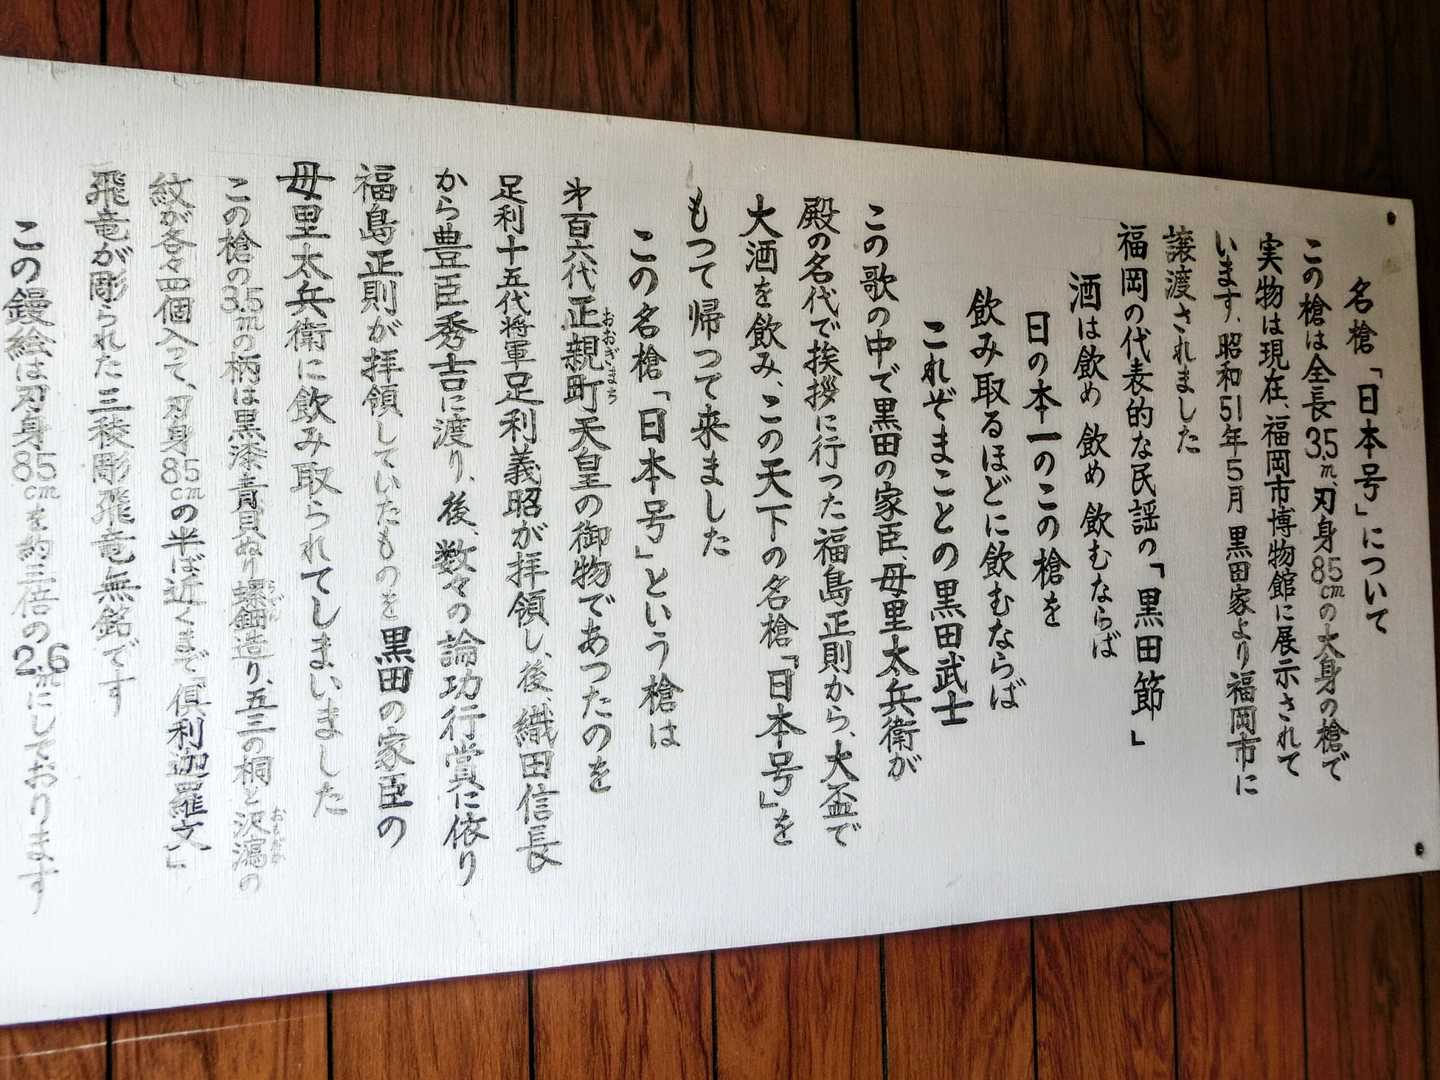 名槍「日本号」について
この槍は全長3.5m、刃身85cmの大身の槍で
実物は現在、福岡市博物館に展示されて
います、昭和51年5月 黒田家より福岡市に
譲渡されました
福岡の代表的な民謡の「黒田節」
酒は飲め 飲め 飲むならば
日の本一のこの槍を
飲み取るほどに飲むならば
これぞまことの黒田武士
この歌の中で黒田の家臣、母里太兵衛が
殿の名代で挨拶に行った福島正則から、大盃で
大酒を飲み、この天下の名槍「日本号」を
もって帰って来ました
この名槍「日本号」という槍は
㐧百六代正親町天皇の御物であったのを
おおぎまち
足利十五代将軍足利義昭が拝領し、後 織田信長
から豊臣秀吉に渡り、後、数々の論功行賞に依り
福島正則が拝領していたものを 黒田の家臣の
母里太兵衛に飲み取られてしまいました
この槍の3.5mの柄は黒漆青貝ぬり螺鈿造り、五三の桐と沢瀉の
らでん
おもだか
紋が各々四個入って、刃身85cmの半ば近くまで「倶利迦羅文」
飛竜が彫られた三稜彫飛竜無銘です
この鏝絵は刃身85cmを約三倍の2.6mにしております